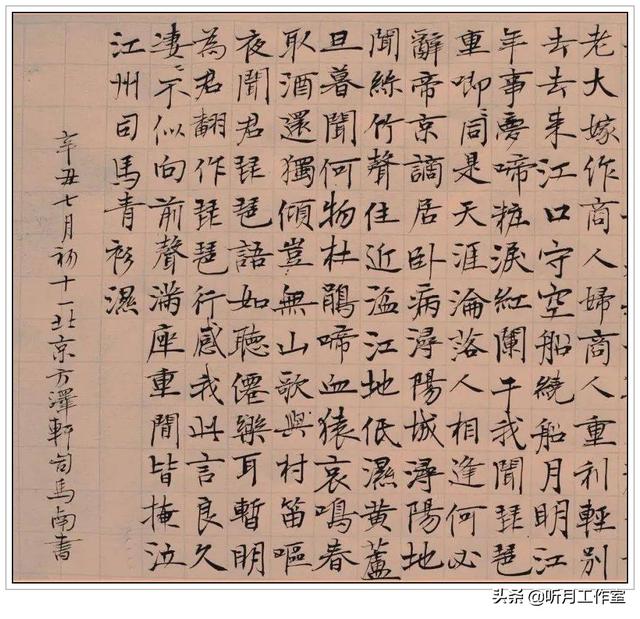 老大嫁作商人婦商人重利輕別
去去来江口守空船繞船月明江
年事夢啼粧淚紅闌干我聞琵琶
重唧〻同是天涯淪落人相逢何必
辭帝京謫居卧病潯陽城潯陽地
聞絲竹聲住近湓江地低濕黄蘆
旦暮聞何物杜鵑啼血猿哀鳴春
取酒還獨傾豈無山歌與村笛嘔
夜聞君琵琶語如聽僊樂耳暫明
為君翻作琵琶行感我此言良久
凄〻不似向前聲滿座重聞皆掩泣
江州司馬青衫濕
辛丑七月初十一北京方澤軒司馬南書
头条 @听月工作室